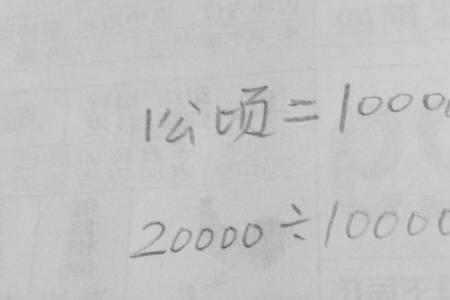 1公顷=10000
20000÷10000